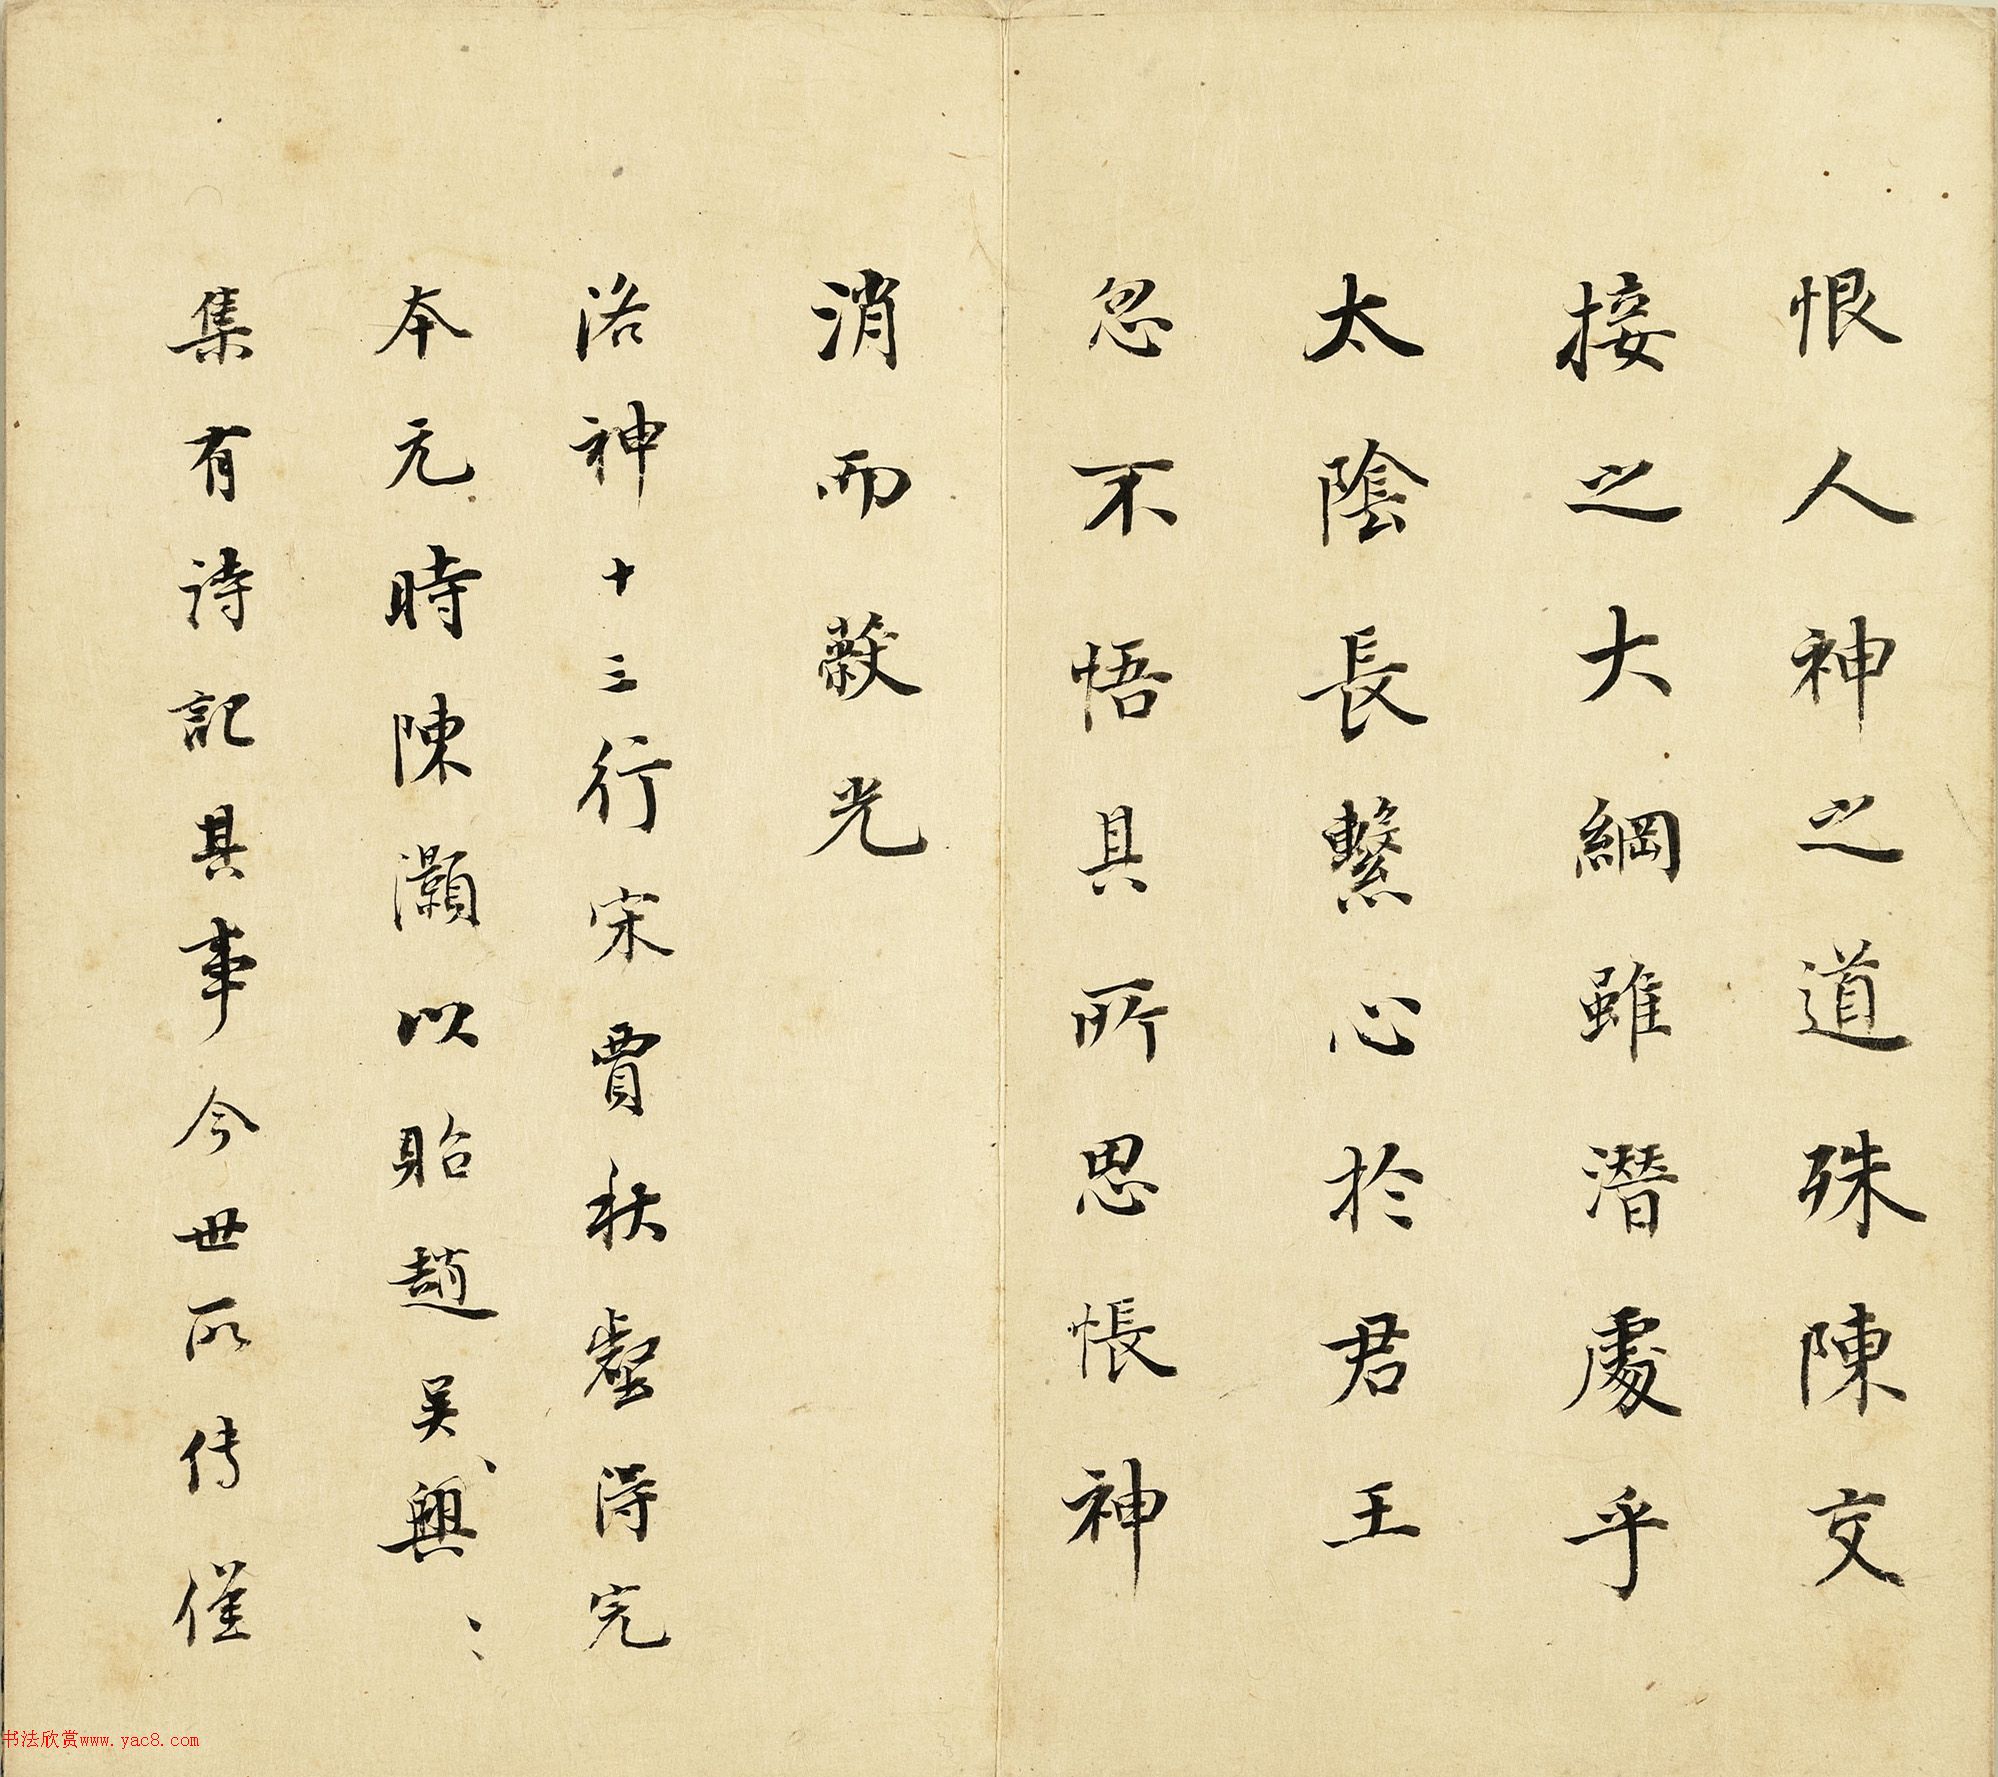 恨人神之道殊陳交
接之大綱雖潛處乎
太陰長繫心於君王
忽不悟其所思悵神
消而蔽光
洛神十三行宋賈秋壑得完
本元時陳灝以貽趙吳興、、
集有詩記其事今世所传僅
书法欣赏www.yac8.com